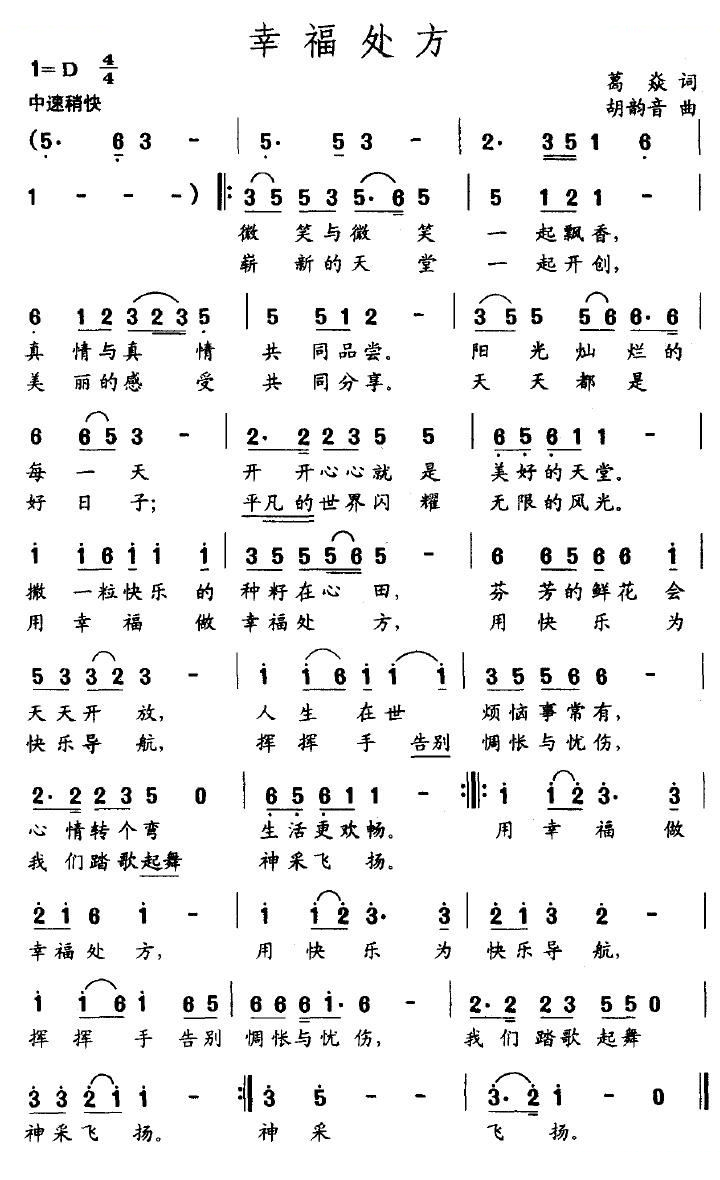 幸福处方
1=D 4/4
葛焱词
中速稍快
胡韵音曲
(5· 6 3 - | 5· 5 3 - | 2· 3 5 1 6
1 - - -) ‖: 3 5 5 3 5· 6 5 | 5 1 2 1 -
微笑与微笑 一起飘香,
崭新的天堂 一起开创,
6 1 2 3 2 3 5 | 5 5 1 2 - | 3 5 5 5 6 6· 6
真情与真情 共同品尝。 阳光灿烂的
美丽的感受 共同分享。 天天都是
6 6 5 3 - | 2· 2 2 3 5 5 | 6 5 6 1 1 -
每一天 开开心心就是 美好的天堂。
好日子; 平凡的世界闪耀 无限的风光。
1 1 6 1 1 1 | 3 5 5 5 6 5 - | 6 6 5 6 6 1
撒一粒快乐的 种籽在心田, 芬芳的鲜花会
用幸福做 幸福处方, 用快乐为
5 3 3 2 3 - | 1 1 6 1 1 1 | 3 5 5 6 6 -
天天开放, 人生在世 烦恼事常有,
快乐导航, 挥挥手告别 惆怅与忧伤,
2· 2 2 3 5 0 | 6 5 6 1 1 - :‖: 1 1 2 3· 3
心情转个弯 生活更欢畅。 用幸福做
我们踏歌起舞 神采飞扬。
2 1 6 1 - | 1 1 2 3· 3 | 2 1 3 2 -
幸福处方, 用快乐为 快乐导航,
1 1 6 1 6 5 | 6 6 6 1· 6 - | 2· 2 2 3 5 5 0
挥挥手告别 惆怅与忧伤, 我们踏歌起舞
3 3 2 1 1 - :‖ 3 5 - - | 3· 2 1 - 0 ‖
神采飞扬。 神采 飞扬。